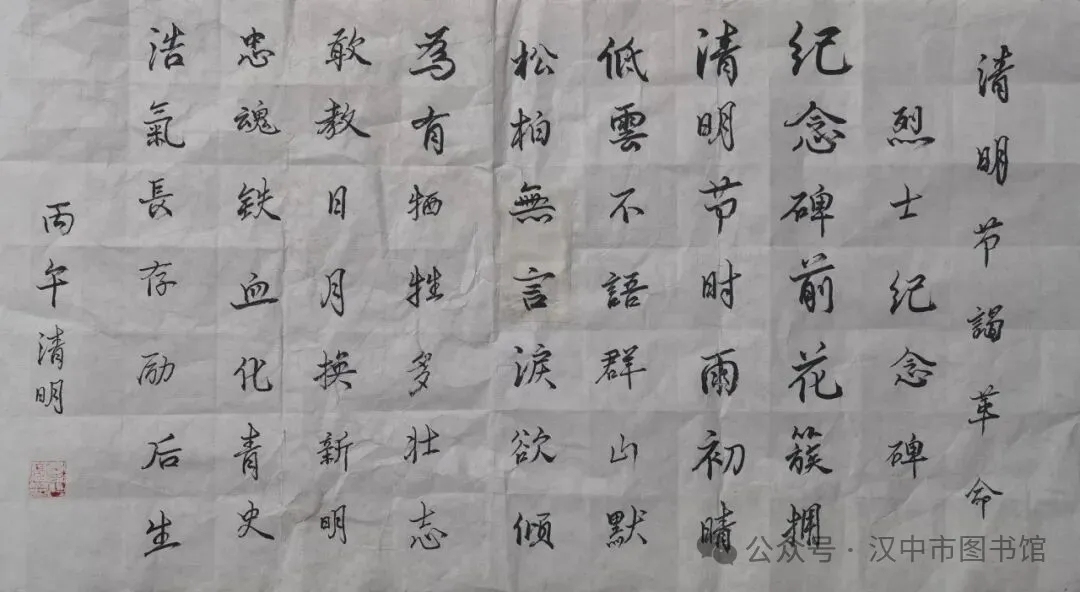 清明节謁革命
烈士纪念碑
纪念碑前花簇拥
清明节时雨初晴
低雲不語群山默
松柏無言淚欲倾
為有牺牲多壮志
敢教日月换新明
忠魂铁血化青史
浩氣長存励后生
丙午清明
公众号·汉中市图书馆